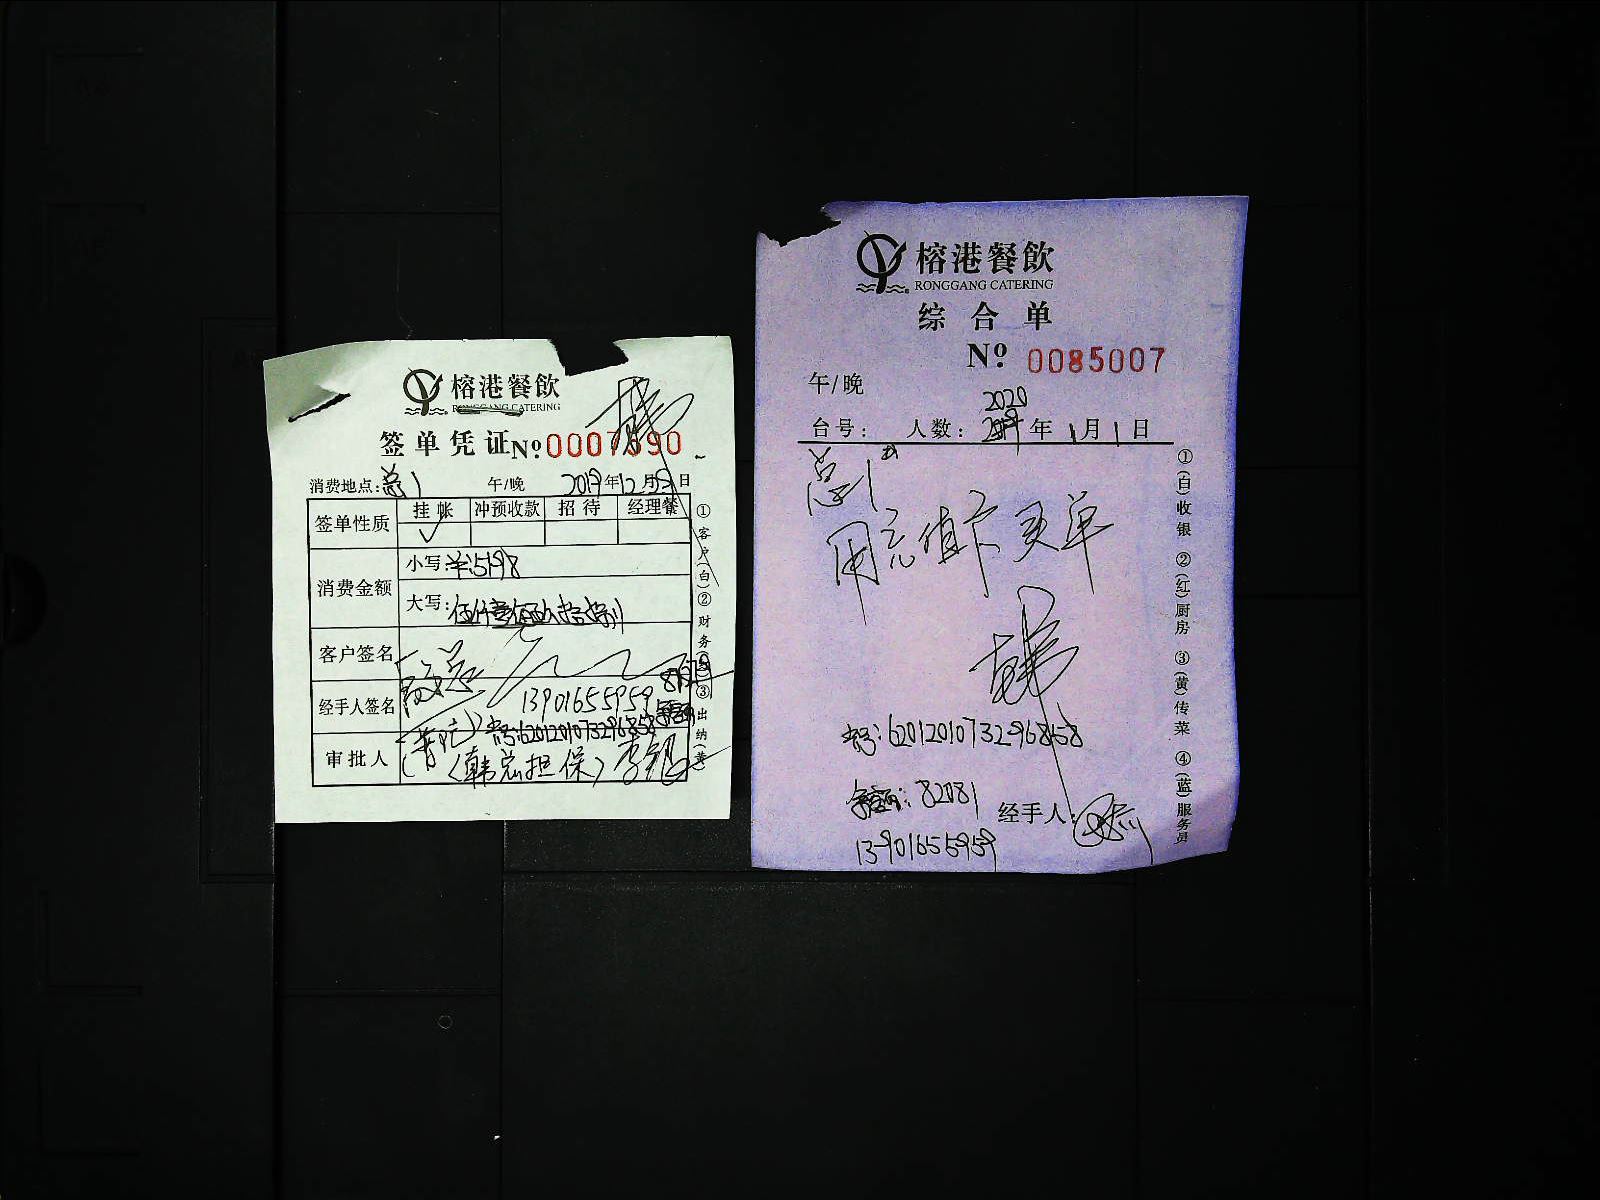 榕港餐飲
RONGGANG CATERING
签单凭证 № 0007690
消费地点:总1 午/晚 2019年12月 日
签单性质 挂帐 冲预收款 招待 经理餐
✓
消费金额
小写:¥:5198
大写:伍仟壹佰玖拾捌
客户签名
经手人签名 13901655959
卡号:6201201073296858
审批人 (韩宏担保)
①客户(白)②财务 ③出纳(黄)
榕港餐飲
RONGGANG CATERING
综合单
№ 0085007
午/晚
2020
台号: 人数: 2019年1月1日
总1
用充值卡买单
韩
卡号:6201201073296858
余额:82081
经手人:
13901655959
①(白)收银 ②(红)厨房 ③(黄)传菜 ④(蓝)服务员